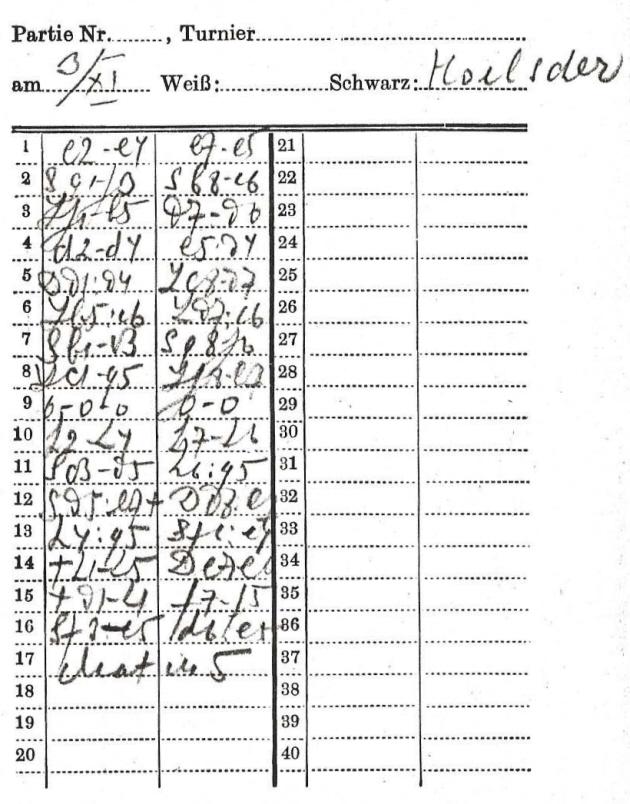 Partie Nr. , Turnier
am 3/XI Weiß: Schwarz: Hoelsder
1 e2-e4 e7-e5 21
2 Sg1-f3 Sb8-c6 22
3 Lf1-b5 d7-d6 23
4 d2-d4 e5:d4 24
5 Dd1:d4 Lc8-d7 25
6 Lb5:c6 Ld7:c6 26
7 Sb1-c3 Sg8-f6 27
8 Lc1-g5 Lf8-e7 28
9 0-0-0 0-0 29
10 h2-h4 h7-h6 30
11 Sc3-d5 h6:g5 31
12 Sd5:e7+ Dd8:e7 32
13 h4:g5 Sf6:e4 33
14 Th1-h5 De7-e6 34
15 Td1-h1 f7-f5 35
16 Sf3-e5 d6:e5 36
17 Mat in 5 37
18 38
19 39
20 40